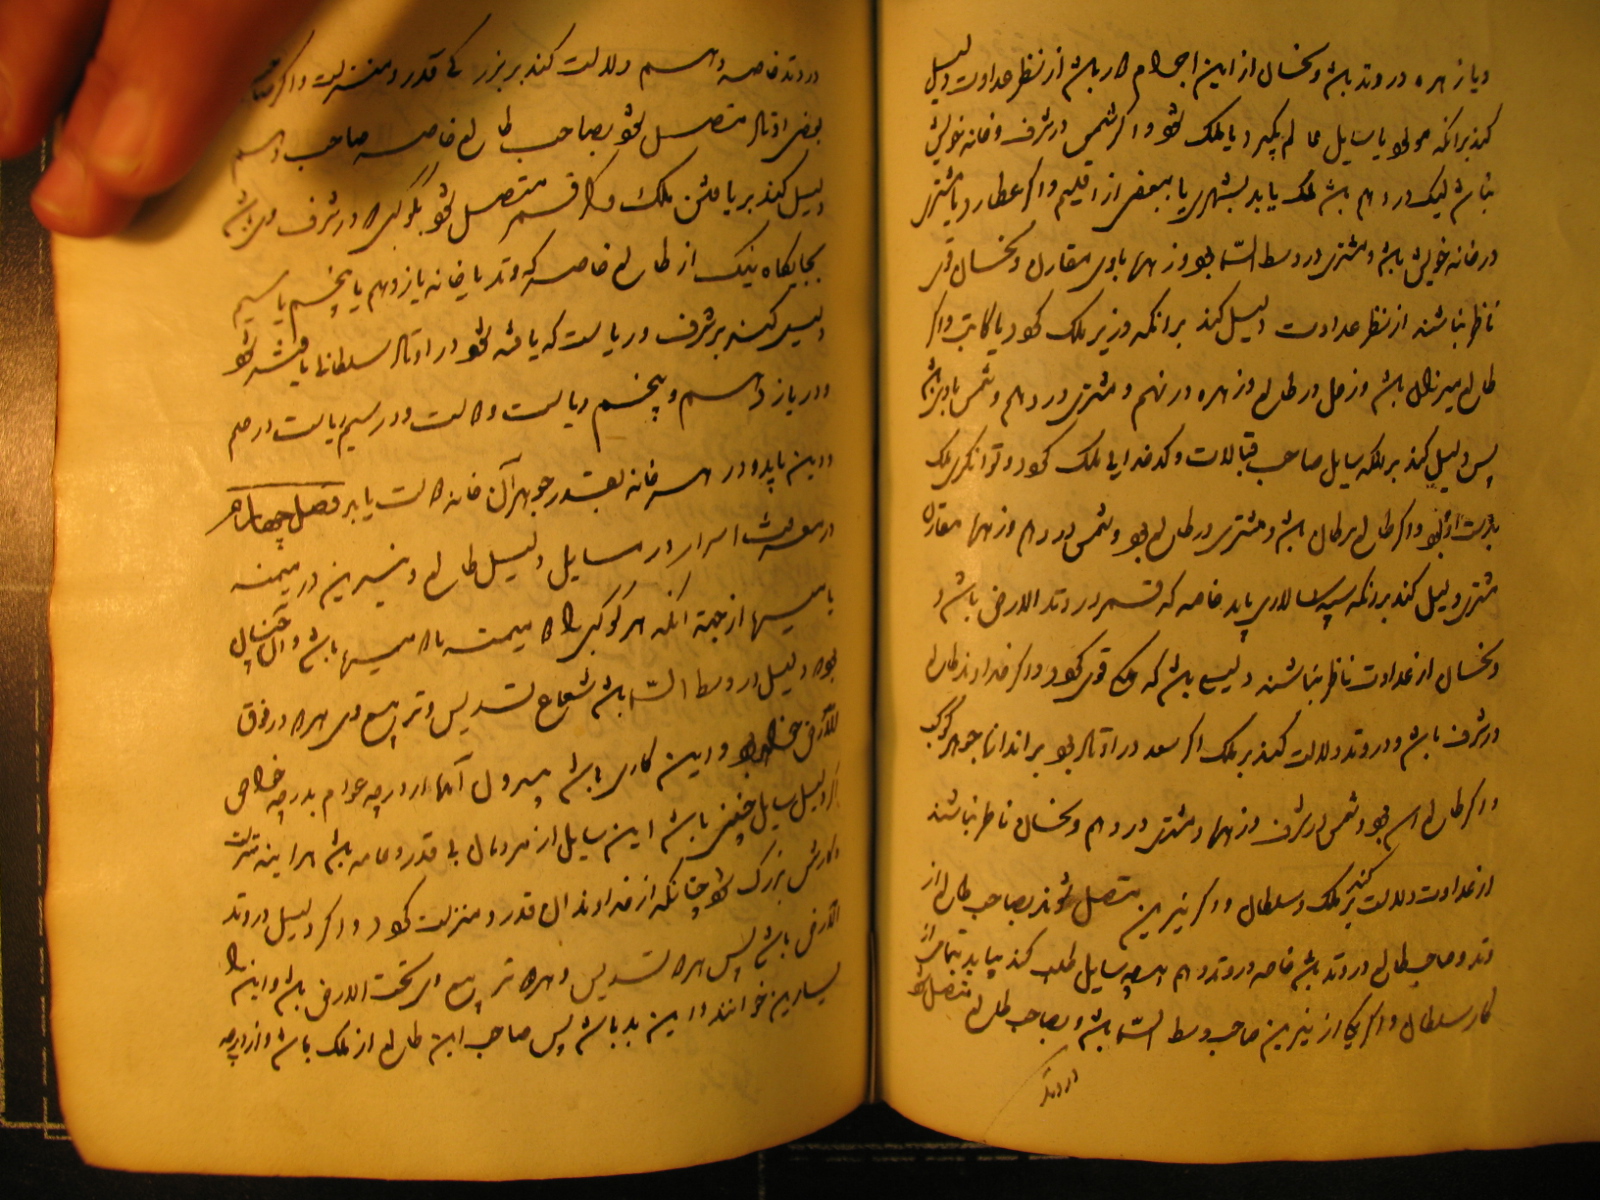 و یا زهره در وتد باشد و نحسان از این اجرام دار باشد از نظر عداوت دلیل
کند برآنکه مولود یا سایل عالم گیرد یا ملک شود و اگر شمس در شرف و خانه خویش
نباشد لیک در دهم باشد ملک یابد بشهری یا ببعضی از اقلیم و اگر عطارد با مشتری
در خانه خویش باشد و مشتری در وسط السما بود و زهره با وی مقارن و نحسان قوی
ناظر نباشند از نظر عداوت دلیل کند برانکه وزیر ملک گردد یا کاتب و اگر
طالع میزان باشد و زحل در طالع و زهره در نهم و مشتری در دهم و شمس با وی باشد
پس دلیل کند بر ملکه سایل صاحب قبالات و کدخدایی ملک گردد و توانگری ملک
بدست او بود و اگر طالع سرطان باشد و مشتری در طالع بود و شمس در دهم و زهره مقارن
مشتری دلیل کند برآنکه سپه سالاری یابد خاصه که قمر در وتد الارض باشد و
و نحسان از عداوت ناظر نباشند دلیل باشد که ملک قوی گردد و اگر خداوند طالع
در شرف باشد و در وتد دلالت کند بر ملک اگر سعد در اوتاد بود بر اندازه جوهر کوکب
و اگر طالع اسد بود و شمس در شرف و زهره و مشتری در دهم و نحسان ناظر نباشند
از عداوت دلالت کند بر ملک و سلطان و اگر نیرین متصل شوند بصاحب طالع از
وتد و صاحب طالع در وتد باشد خاصه در وتد دهم هرچه سایل طلب کند بیابد بتمامی از
کار سلطان و اگر یکی از نیرین صاحب وسط السما باشد و بصاحب طالع متصل شود
در وتد
در وتد خاصه دهم دلالت کند بر بزرگی قدر و منزلت و اگر صاحب
بعضی اوتاد متصل شود بصاحب طالع خاصه صاحب دهم
دلیل کند بر یافتن ملک و اگر قمر متصل شود بکوکبی که در شرف وی باشد
بجایگاه نیک از طالع خاصه که وتد یا خانه یازدهم یا پنجم یا سیم
دلیل کند بر شرف و ریاست که یافته شود در اوتاد سلطانی یافته شود
و در یازدهم و پنجم ریاست و در سیم ریاست در علم
و دین یابد و در هر خانه بقدر جوهر آن خانه یابد فصل چهارم
در معرفت اسرار در مسایل دلیل طالع و نیرین در میمنه
یا میسره از جهة آنکه هر کوکبی را میمنه باشد و آن چنان
بود دلیل در وسط السما باشد شعاع تسدیس و تربیع وی در فوق
الارض خواهد بود و این کاری باشد بیرون آمدن از درجه عوام بدرجه خواص
اگر دلیل سایل چنین باشد این سایل از مردمان بی قدر و عامه باشد هر آینه منزلت
و کارش بزرگ شود چنانکه از خداوندان قدر و منزلت گردد و اگر دلیل در وتد
الارض باشد پس تسدیس و تربیع وی تحت الارض باشد و این را
یسارین خوانند و این بد باشد پس صاحب این طالع از ملک باشد و از درجه